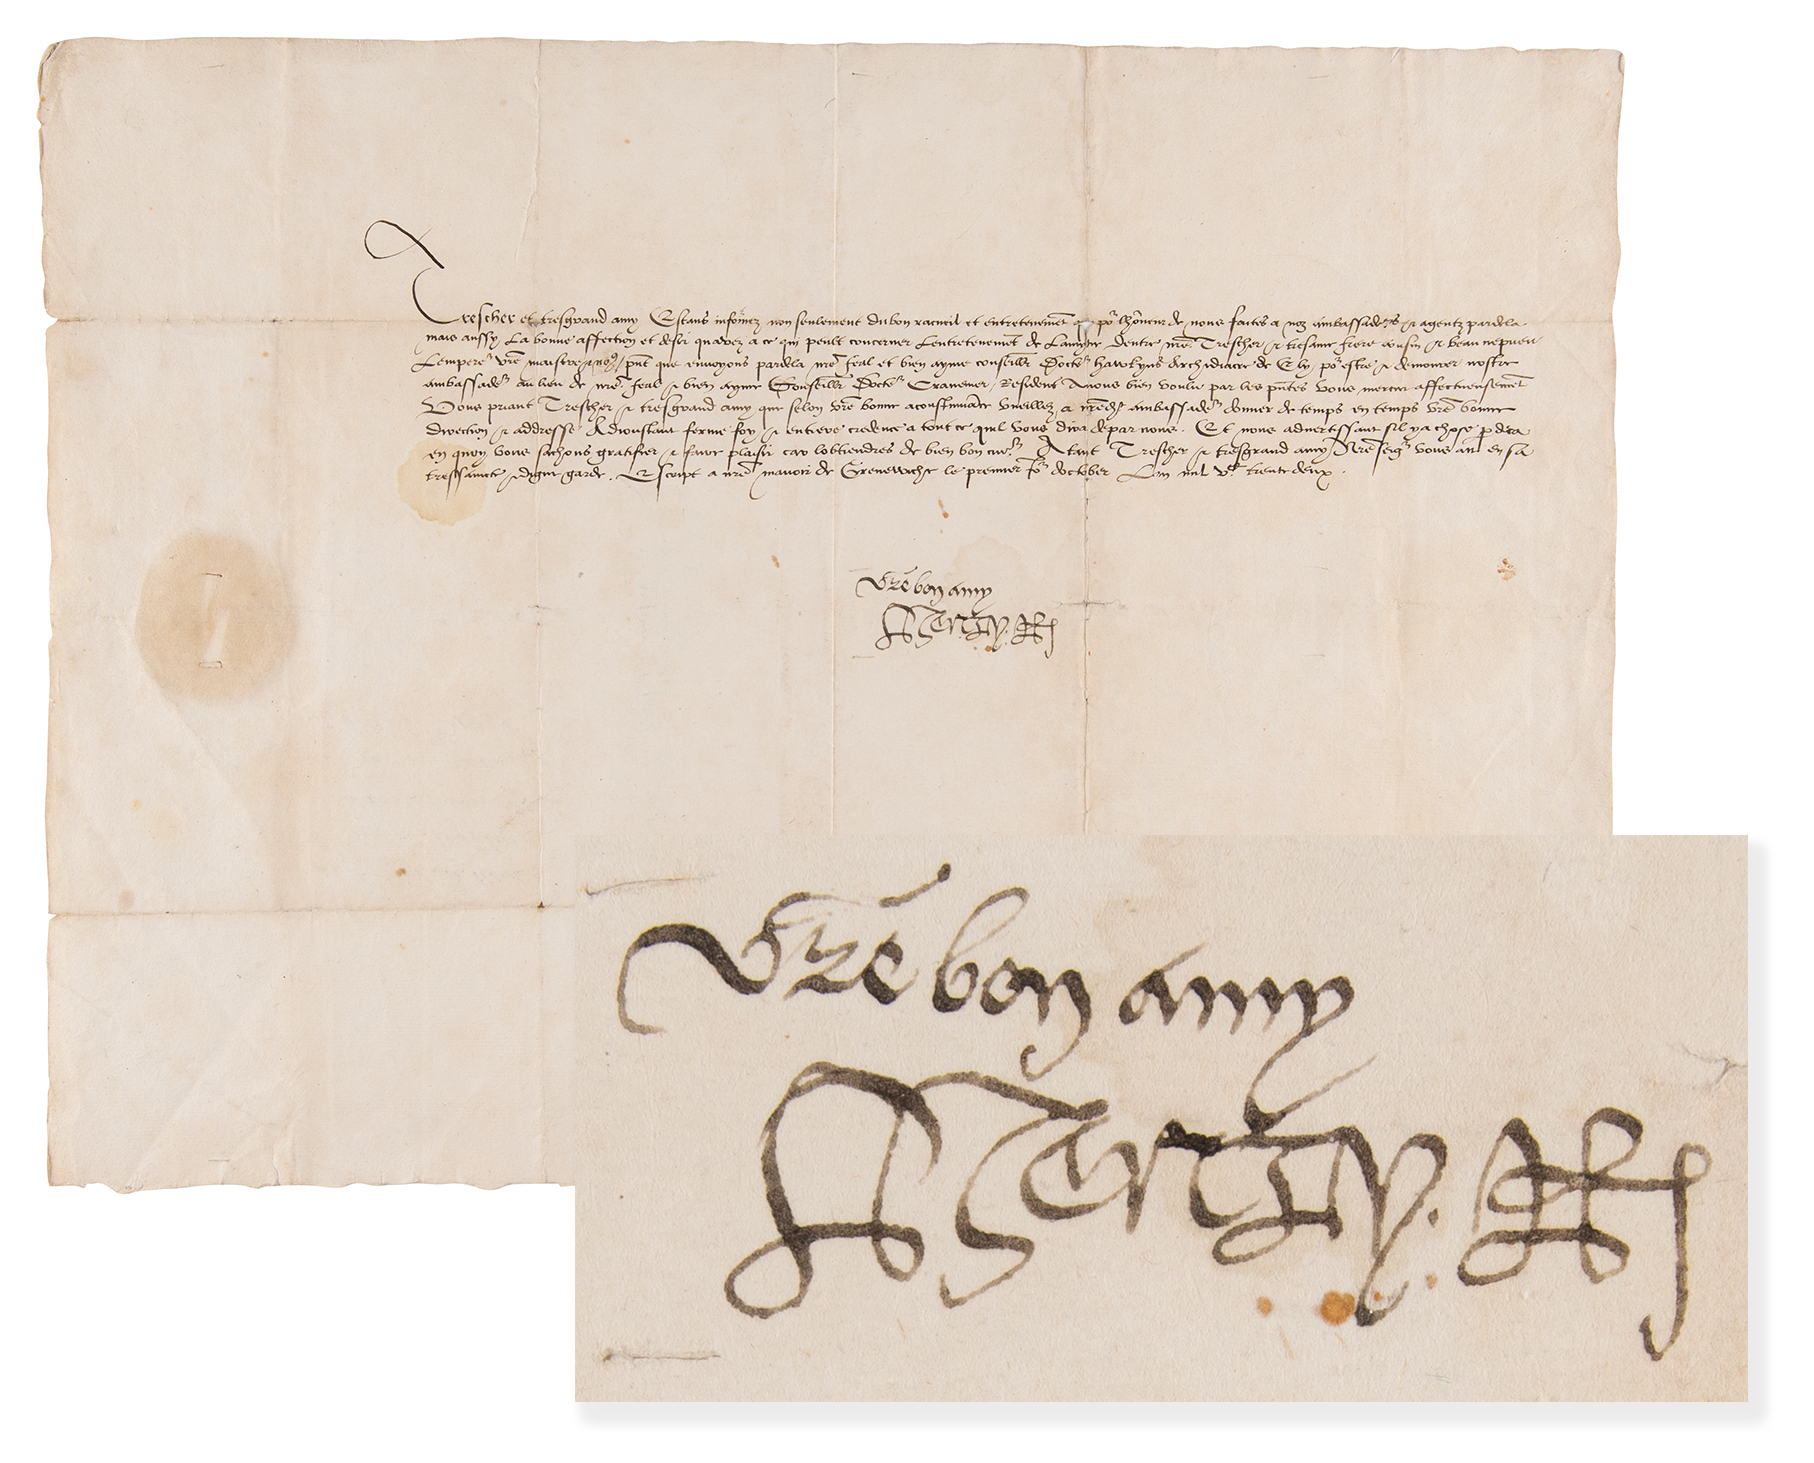 Trescher et tresgrand amy Estans informez non seulement du bon racueil et entretenemēt q̄ poʳ lhōneur de nous faites a noz ambassadeʳs et agentz pardela
mais aussy La bonne affection et desir quavez a ce qui peult concerner Lentretenemēt de Lamytie Dentre nr̄e Trescher et tresame frere cousin et beau nepueu
Lempereʳ vr̄e maistre pn̄t que envoyons pardela nr̄e feal et bien ayme conseillr̄ Docteʳ hawkyns Archidiacre de Ely poʳ estre et demourer nostre
ambassadeʳ au lieu de nr̄e feal et bien ayme Conseillr̄ Docteʳ Cranemer Resident Avons bien voulu par les pn̄tes vous mercier affectueusemēt
Vous priant Trescher et tresgrand amy que selon vr̄e bonne acoustumāce vueillez a nr̄edᵗ ambassadeʳ donner de temps en temps vr̄e bonne
direction et addresse Adioustant ferme foy et entiere credence a tout ce quil vous dira depar nous. Et nous advertissant sil y a chose p̄ deca
en quoy vous sachons gratifier et faire plaisir car lobtiendres de bien bon cueʳ. Atant Trescher et tresgrand amy nr̄e seigʳ vous ait en sa
tressaincte et digne garde. Escript a nr̄e manoir de Grenewiche le premier Joʳ doctober Lan mil vᶜ trente deux.
Vr̄e bon amy
Henry R
Vr̄e bon amy
Henry R